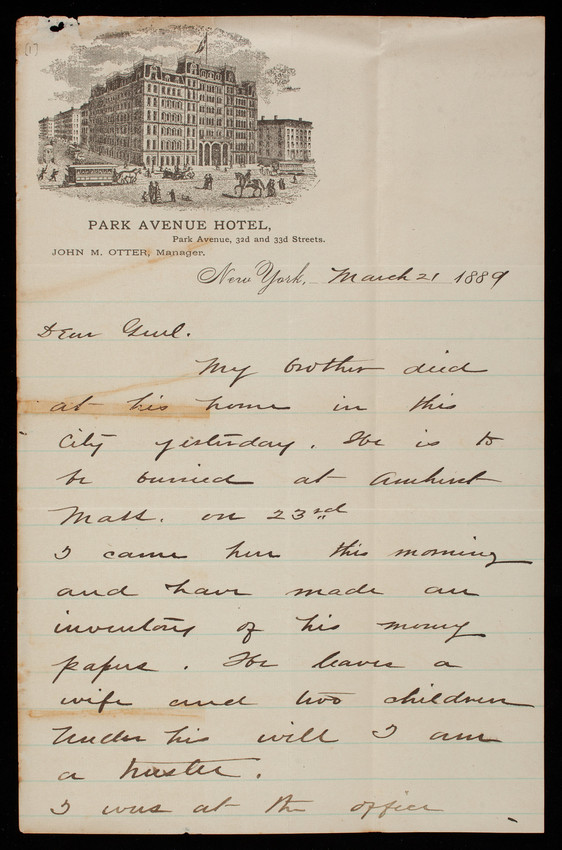 [1]
PARK AVENUE HOTEL,
Park Avenue, 32d and 33d Streets.
JOHN M. OTTER, Manager.
New York, March 21 1889
Dear Genl.
My brother died
at his home in this
city yesterday. He is to
be burried at Amherst
Mass. on 23rd
I came here this morning
and have made an
inventory of his money
papers. He leaves a
wife and two children
Under his will I am
a trustee.
I was at the office